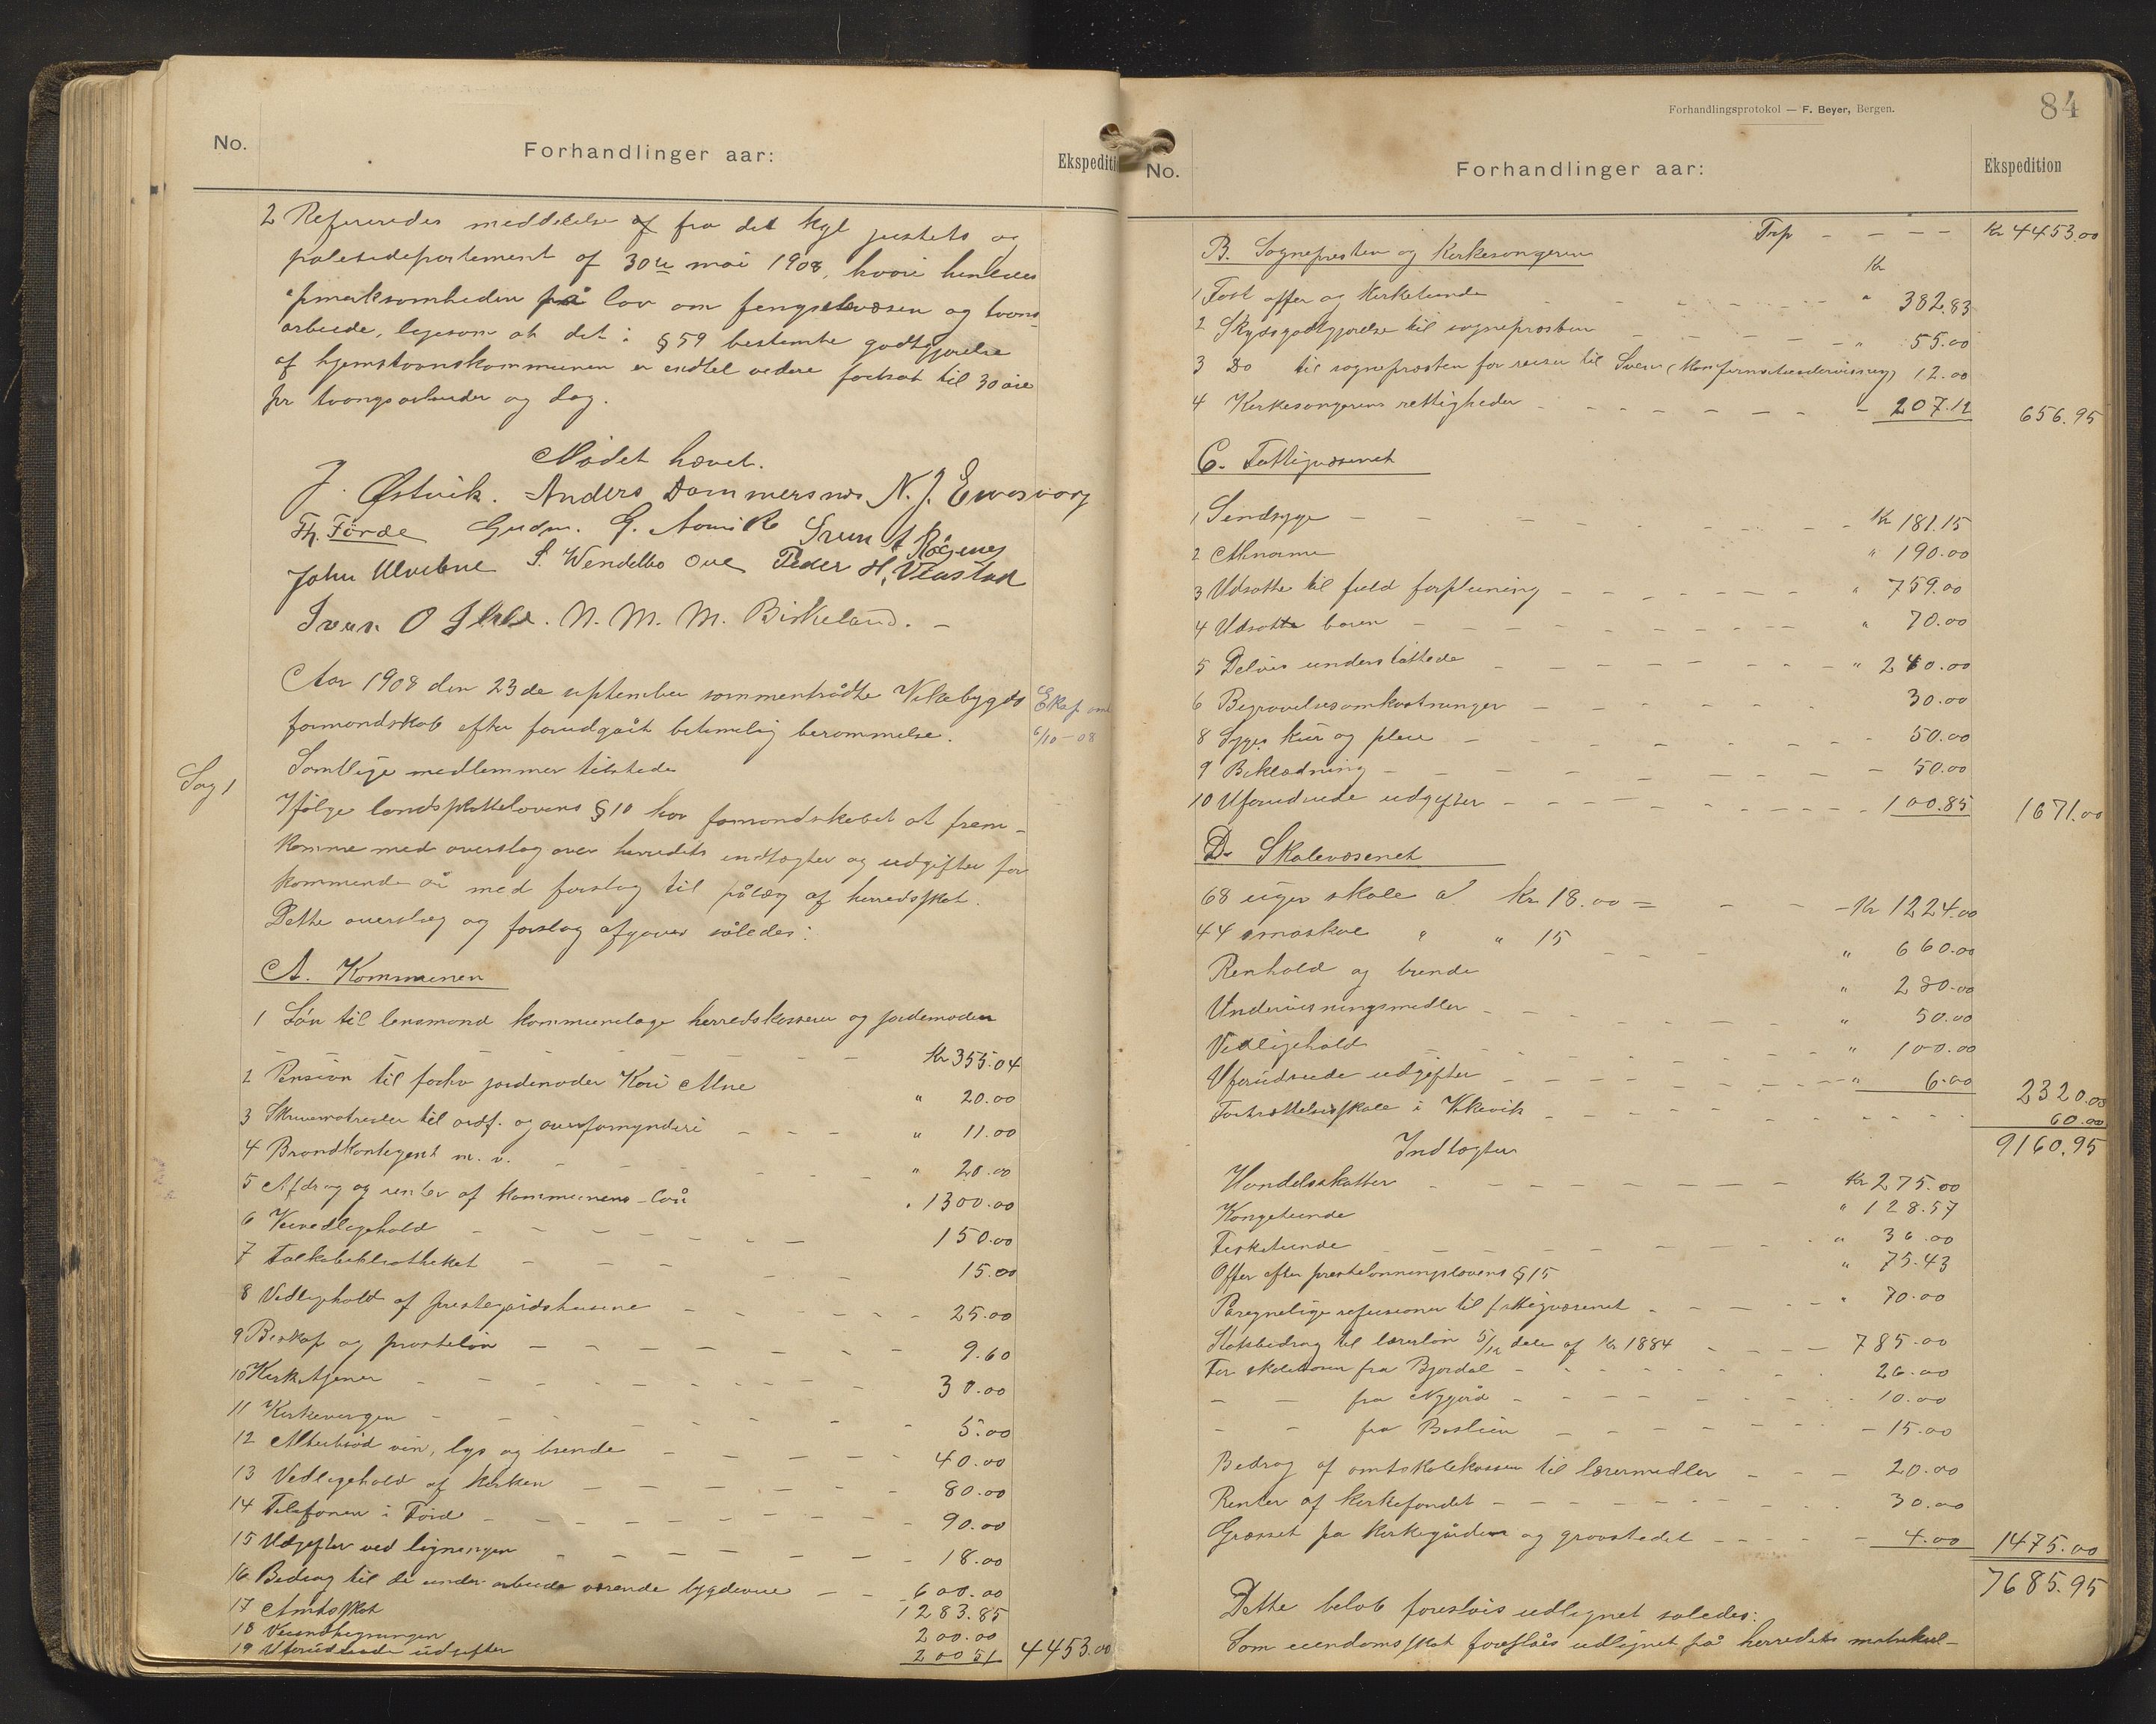 No.
Forhandlinger aar:
Ekspediti
2 Refereredes meddelelse af fra det kgl justets og
politidepartement af 30te mai 1908, hvori henledes
opmerksomheden på lov om fengselsvæsen og tvangs-
arbeide, ligesom at det i § 59 bestemte godtgjørelse
af hjemstavnskommunen er indtil videre fastsat til 30 øre
pr tvangsarbeider og dag.
Mødet hævet.
J. Østvik. Anders Dommersnes N. J.
Th. Førde Gudm. G. Sven A Røgenes
John Ulvebne S. Wendelbo Ove Peder H. Vestad
Iver O N. M. M. Birkeland. –
Aar 1908 den 23de september sammentrådte Vikebygds
formandskab efter forudgåit betimelig berammelse.
Ekap amt
6/10–08
Samtlige medlemmer tilstede
Sag 1
Ifølge landsskattelovens § 10 har formandskabet at frem-
komme med overslag over herredets indtægter og udgifter for
kommende år med forslag til pålæg af herredsskat.
Dette overslag og forslag afgaves således:
A. Kommunen
1 Løn til lensmand kommunelæge herredskasserer og jordemoder
Kr 355.04
2 Pension til forhv jordemoder Kari Alne " 20.00
3 Skrivematrialer til ordf. og overformynderi " 11.00
4 Brandkontigent m. v. " 20.00
5 Afdrag og renter af kommunens lån " 1300.00
6 Veivedligehold 150.00
7 Folkebibliotheket 15.00
8 Vedligehold af prestegårdshusene 25.00
9 Biskop og prosteløn 9.60
10 Kirketjener 30.00
11 Kirkevergen 5.00
12 Alterbrød vin, lys og brende 40.00
13 Vedligehold af kirken 80.00
14 Telefonen i Førde 90.00
15 Udgifter ved ligningen 18.00
16 Bidrag til de under arbeide værende bygdeveie 600.00
17 Amtsskat 1283.85
18 Veiindhegningen 200.00
19 Uforudseede udgifter 200 51 4453.00
Forhandlingsprotokol — F. Beyer, Bergen.
84
No.
Forhandlinger aar:
Ekspedition
Trp – – – – Kr 4453.00
B. Sognepresten og Kirkesangeren
Kr
1 Fast offer og kirketiende " 382.83
2 Skydsgodtgjørelse til sognepresten " 55.00
3 Do til sognepresten for reiser til (konfirmantundervisning) 12.00
4 Kirkesangerens rettigheder – 207.12 656.95
C. Fattigvæsenet
1 Sindsyge Kr 181.15
2 Almome " 190.00
3 Udsatte til fuld forpleining " 759.00
4 Udsatte børn " 70.00
5 Delvis understøttede " 240.00
6 Begravelsesomkostninger 30.00
8 Syges kur og pleie 50.00
9 Beklædning 50.00
10 Uforudseede udgifter 100.85 1671.00
D. Skolevæsenet
68 uger skole a Kr 18.00 = Kr 1224.00
44 småskole " " 15 " 660.00
Renhold og brende " 280.00
Undervisningsmidler " 50.00
Vedligehold " 100.00
Uforudseede udgifter " 6.00 2320.00
Fortsættelsesskole i Vikevik 60.00
9160.95
Indtægter
Handelsskatter Kr 275.00
Kongetiende " 128.57
Fisketiende " 36.00
Offer efter prestelønningslovens § 15 " 75.43
Påregnelige refusioner til fattigvæsenet " 70.00
Statsbidrag til lærerløn 5/12 dele af Kr 1884 785.00
For skolebarn fra Bjordal 26.00
– – fra Nygård 10.00
– – fra 15.00
Bidrag af amtskolekassen til læremidler 20.00
Renter af kirkefondet 30.00
Græsset på kirkegården og gravstedet 4.00 1475.00
7685.95
Dette beløb foreslåes udlignet således:
Som eiendomsskat foreslåes udlignet på herredets matrikul-